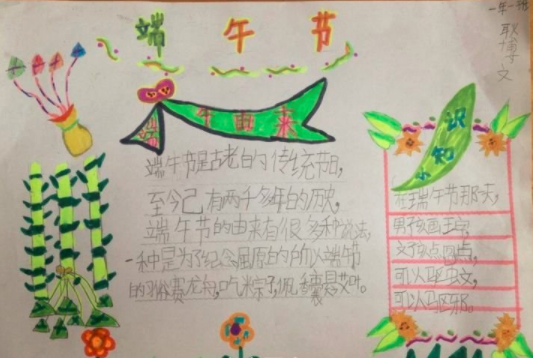 端午节
一年一班
耿博文
端午由来
端午节是古老的传统节日,
至今己有两千多年的历史,
端午节的由来有很多种说法,
一种是为了纪念屈原的所以端午节
的习俗赛龙舟,吃粽子,佩香囊悬艾叶。
小知识
在端午节那天,
男孩画王字
女孩点圆点,
可以驱虫文,
可以驱邪。